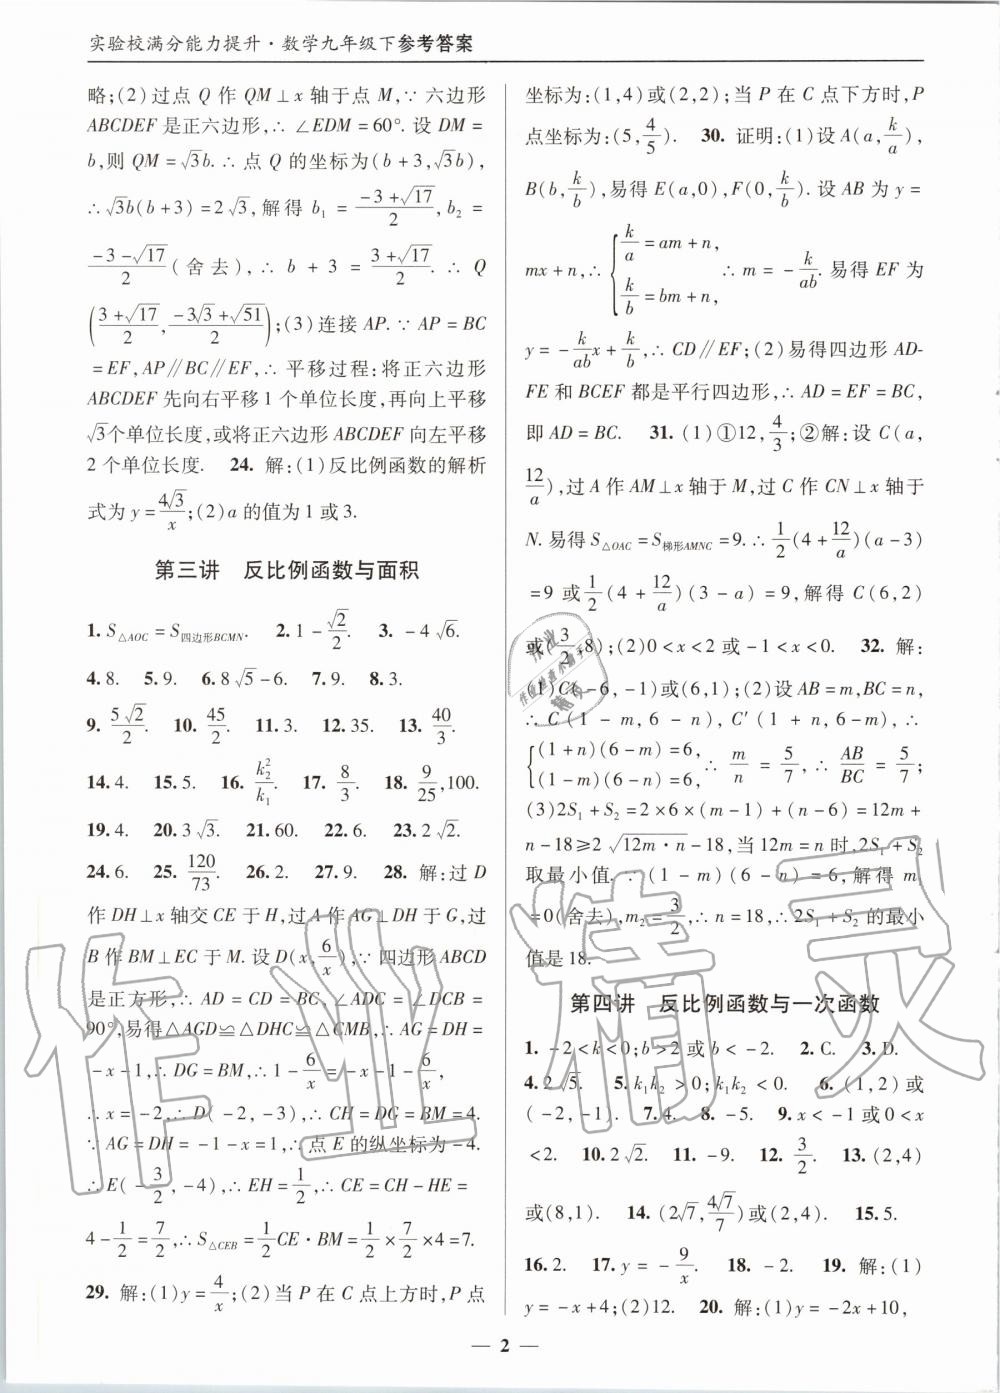 实验校满分能力提升·数学九年级下参考答案
略;(2)过点 Q 作 QM⊥x 轴于点 M,∵ 六边形
ABCDEF 是正六边形,∴ ∠EDM=60°. 设 DM=
b,则 QM=√3b.∴ 点 Q 的坐标为(b+3,√3b),
∴√3b(b+3)=2√3,解得 b₁=(-3+√17)/2,b₂=
(-3-√17)/2(舍去),∴ b+3=(3+√17)/2.∴ Q
((3+√17)/2,(-3√3+√51)/2);(3)连接 AP.∵ AP=BC
=EF,AP∥BC∥EF,∴ 平移过程:将正六边形
ABCDEF 先向右平移 1 个单位长度,再向上平移
√3个单位长度,或将正六边形 ABCDEF 向左平移
2 个单位长度. 24. 解:(1)反比例函数的解析
式为 y=4√3/x;(2)a 的值为 1 或 3.
第三讲 反比例函数与面积
1. S△AOC=S四边形BCMN. 2. 1-√2/2. 3. -4√6.
4. 8. 5. 9. 6. 8√5-6. 7. 9. 8. 3.
9. 5√2/2. 10. 45/2. 11. 3. 12. 35. 13. 40/3.
14. 4. 15. 5. 16. k₂²/k₁. 17. 8/3. 18. 9/25,100.
19. 4. 20. 3√3. 21. 60. 22. 6. 23. 2√2.
24. 6. 25. 120/73. 26. 2. 27. 9. 28. 解:过 D
作 DH⊥x 轴交 CE 于 H,过 A 作 AG⊥DH 于 G,过
B 作 BM⊥EC 于 M. 设 D(x,6/x),∵ 四边形 ABCD
是正方形,∴ AD=CD=BC,∠ADC=∠DCB=
90°,易得△AGD≌△DHC≌△CMB,∴ AG=DH=
-x-1,∴ DG=BM,∴ 1-6/x=-x-1-6/x,
∴ x=-2,∴ D(-2,-3),∴ CH=DG=BM=4.
∵ AG=DH=-1-x=1,∴ 点 E 的纵坐标为-4.
∴ E(-3/2,-4),∴ EH=1/2,∴ CE=CH-HE=
4-1/2=7/2,∴ S△CEB=1/2CE·BM=1/2×7/2×4=7.
29. 解:(1)y=4/x;(2)当 P 在 C 点上方时,P 点
坐标为:(1,4)或(2,2);当 P 在 C 点下方时,P
点坐标为:(5,4/5). 30. 证明:(1)设 A(a,k/a),
B(b,k/b),易得 E(a,0),F(0,k/b).设 AB 为 y=
mx+n,∴{k/a=am+n, k/b=bm+n, ∴ m=-k/ab.易得 EF 为
y=-k/ab x+k/b,∴ CD∥EF;(2)易得四边形 AD-
FE 和 BCEF 都是平行四边形,∴ AD=EF=BC,
即 AD=BC. 31. (1)①12,4/3;②解:设 C(a,
12/a),过 A 作 AM⊥x 轴于 M,过 C 作 CN⊥x 轴于
N. 易得 S△OAC=S梯形AMNC=9.∴ 1/2(4+12/a)(a-3)
=9 或1/2(4+12/a)(3-a)=9,解得 C(6,2)
或(3/2,8);(2)0<x<2 或-1<x<0. 32. 解:
(1)C(-6,-1)或(6,1);(2)设 AB=m,BC=n,
∴ C(1-m,6-n),C′(1+n,6-m),∴
{(1+n)(6-m)=6, (1-m)(6-n)=6, ∴ m/n=5/7,∴ AB/BC=5/7;
(3)2S₁+S₂=2×6×(m-1)+(n-6)=12m+
n-18≥2√(12m·n)-18,当 12m=n 时,2S₁+S₂
取最小值.∵(1-m)(6-n)=6,解得 m₁
=0(舍去),m₂=3/2,∴ n=18,∴ 2S₁+S₂ 的最小
值是 18.
第四讲 反比例函数与一次函数
1. -2<k<0;b>2 或 b<-2. 2. C. 3. D.
4. 2√5. 5. k₁k₂>0;k₁k₂<0. 6. (1,2)或
(-2,-1). 7. 4. 8. -5. 9. x<-1 或 0<x
<2. 10. 2√2. 11. -9. 12. 3/2. 13. (2,4)
或(8,1). 14. (2√7,4√7/7)或(2,4). 15. 5.
16. 2. 17. y=-9/x. 18. -2. 19. 解:(1)
y=-x+4;(2)12. 20. 解:(1)y=-2x+10,
— 2 —
作业精灵